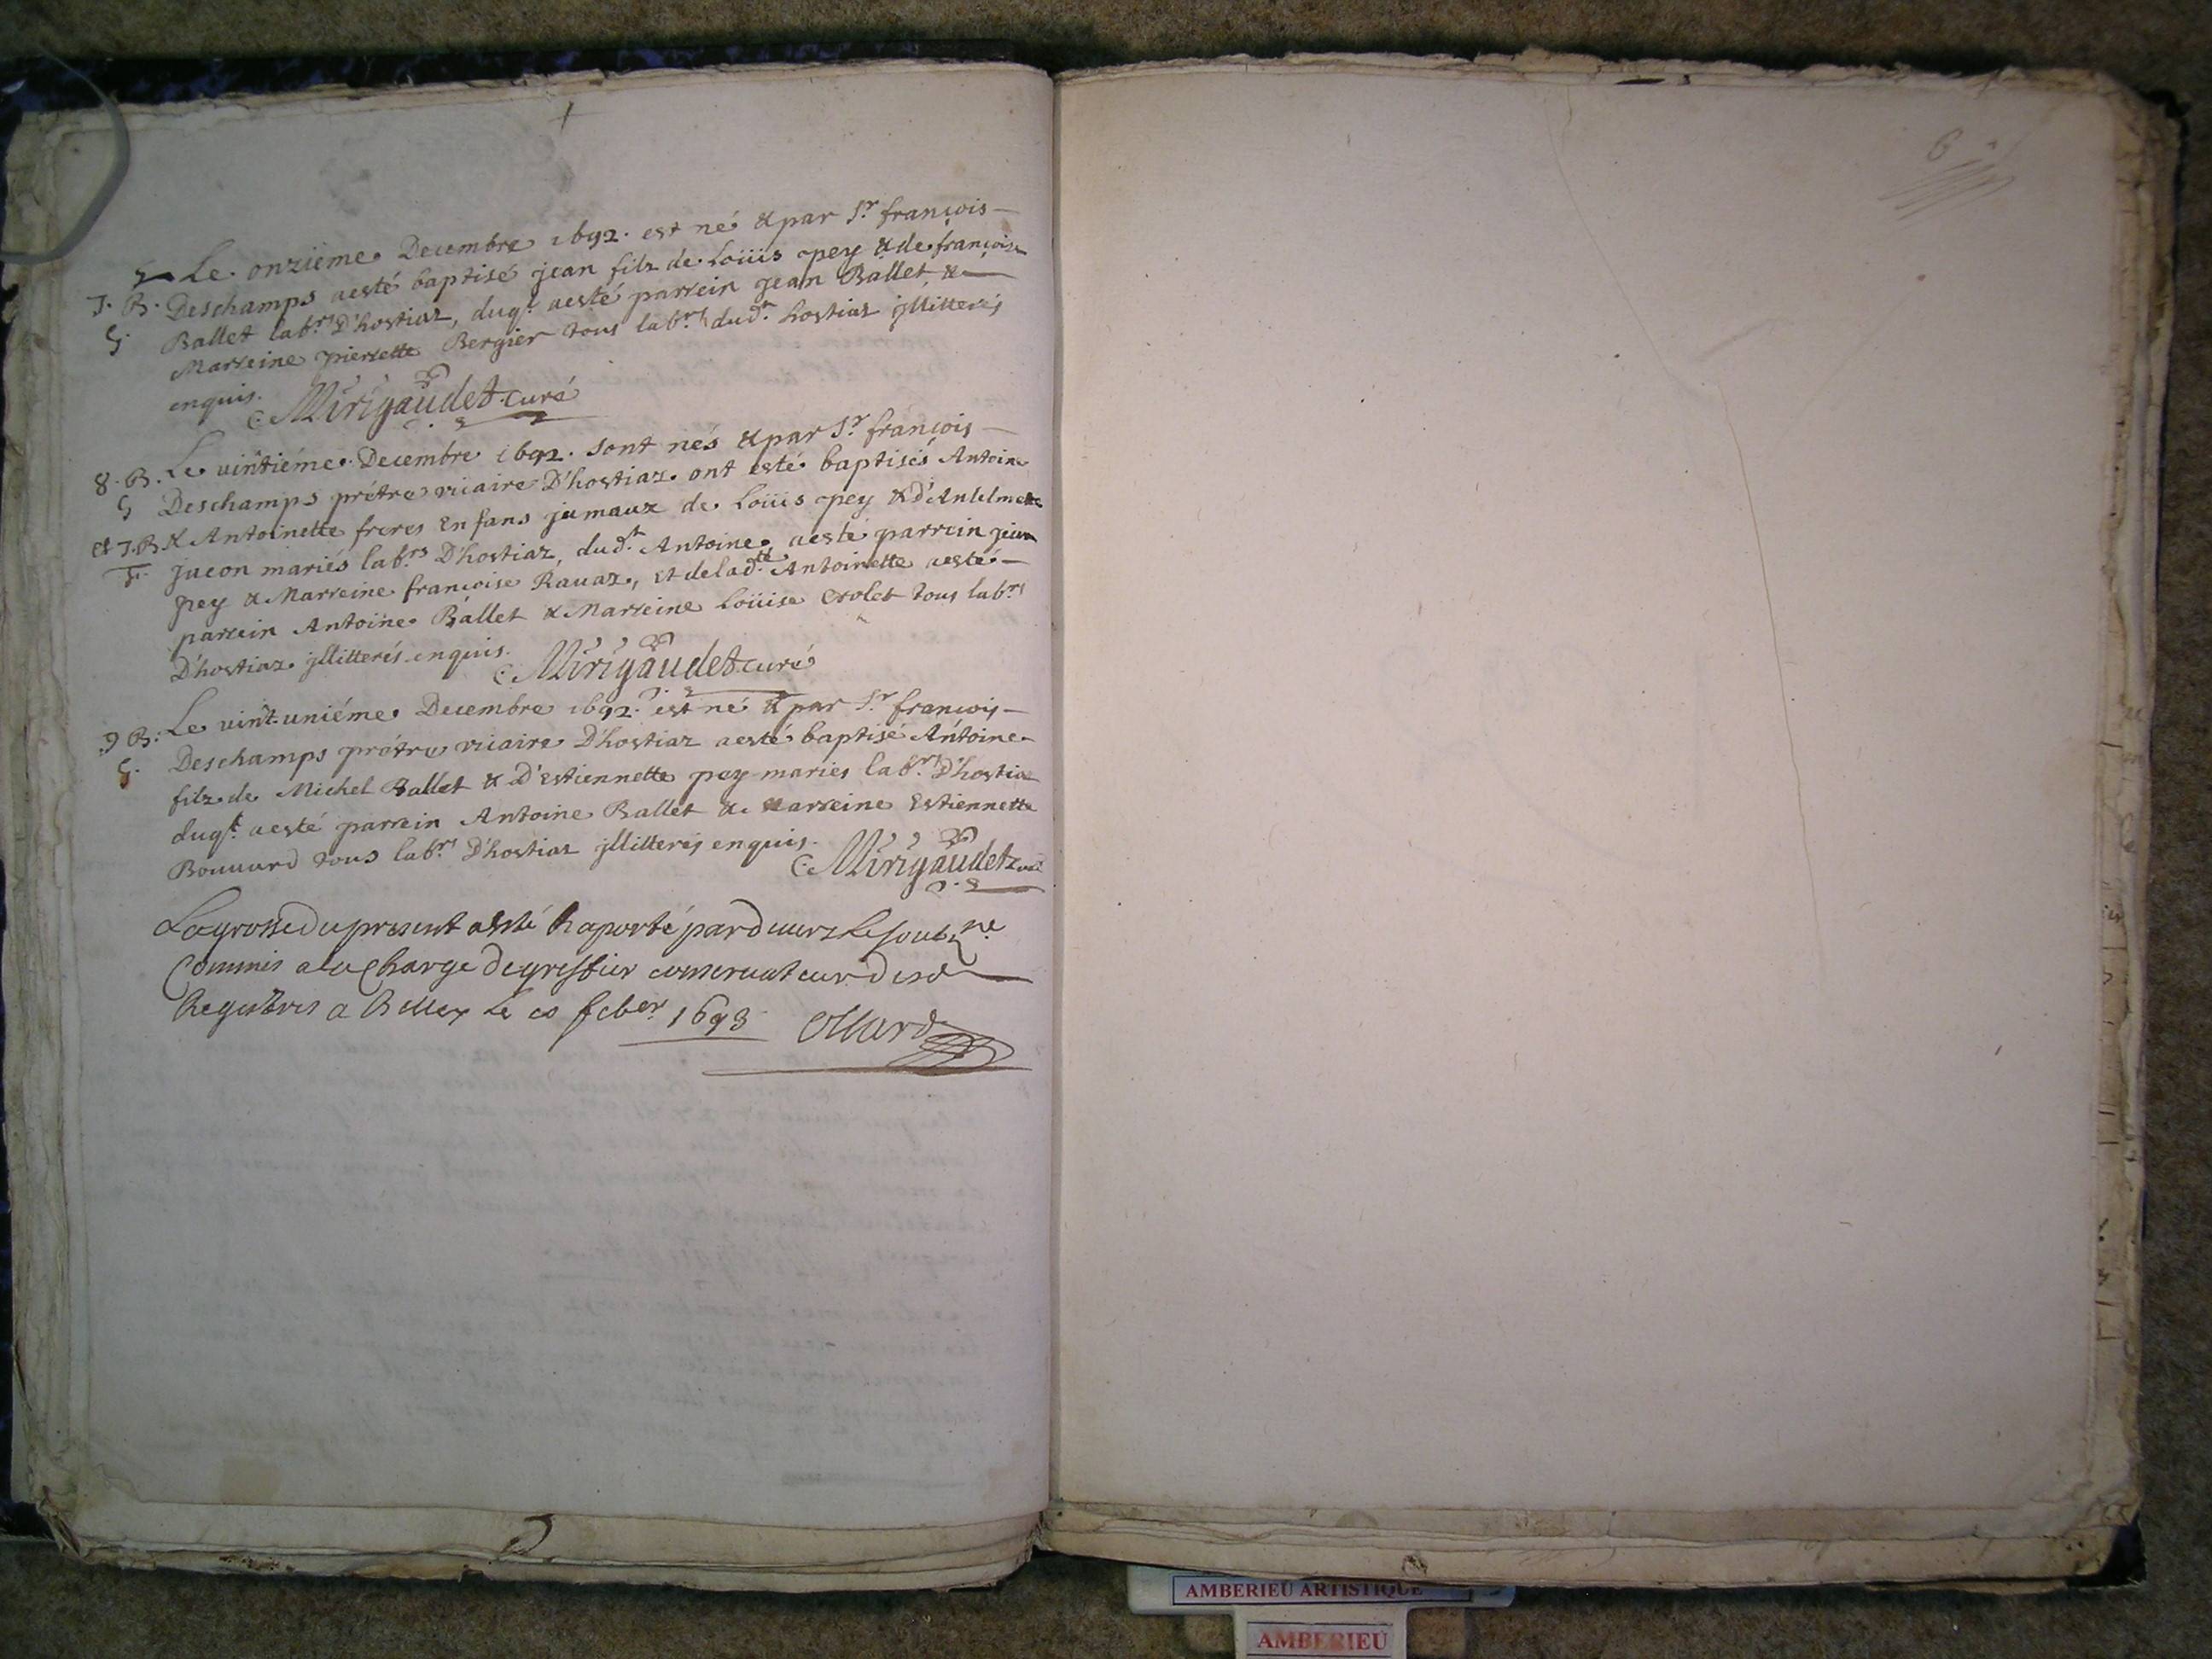 Le onziéme Decembre 1692. est né & par Sr. françois
7. B. Deschamps aesté baptisé jean filz de Loüis pey & de françoise
G. Ballet labrs. D'hostiaz, duqt. aesté parrein jean Ballet &
Marreine pierrette Bergier tous labrs. dudt. hostiaz jllitterés
enquis. Mirigaudet curé
Le vintiéme Decembre 1692. sont nés & par Sr. françois
8. B. Deschamps prétre vicaire D'hostiaz ont esté baptisés Antoine
G & Antoinette freres Enfans jumaux de Loüis pey & d'Antelmette
et 7. B. Jacon mariés labrs. D'hostiaz, dudt. Antoine aesté parrein jean
F. pey & Marreine françoise Ravaz, et de ladte. Antoinette aesté
parrein Antoine Ballet & Marreine Loüise Crolet tous labrs.
D'hostiaz jllitterés enquis. Mirigaudet curé
9 B. Le vint-uniéme Decembre 1692. est né & par Sr. françois
G. Deschamps prétre vicaire D'hostiaz aesté baptisé Antoine
filz de Michel Ballet & D'Estiennette pey mariés labrs. D'hostiaz
duqt. aesté parrein Antoine Ballet & Marreine Estiennette
Bouvard tous labrs. D'hostiaz jllitterés enquis. Mirigaudet curé
La grosse du present aesté Raporté pardevers le soubzne.
Commis a la Charge de greffier conservateur desd
Registres a Belley Le 20 feber 1693 Ollard
6
AMBERIEU ARTISTIQUE
AMBERIEU